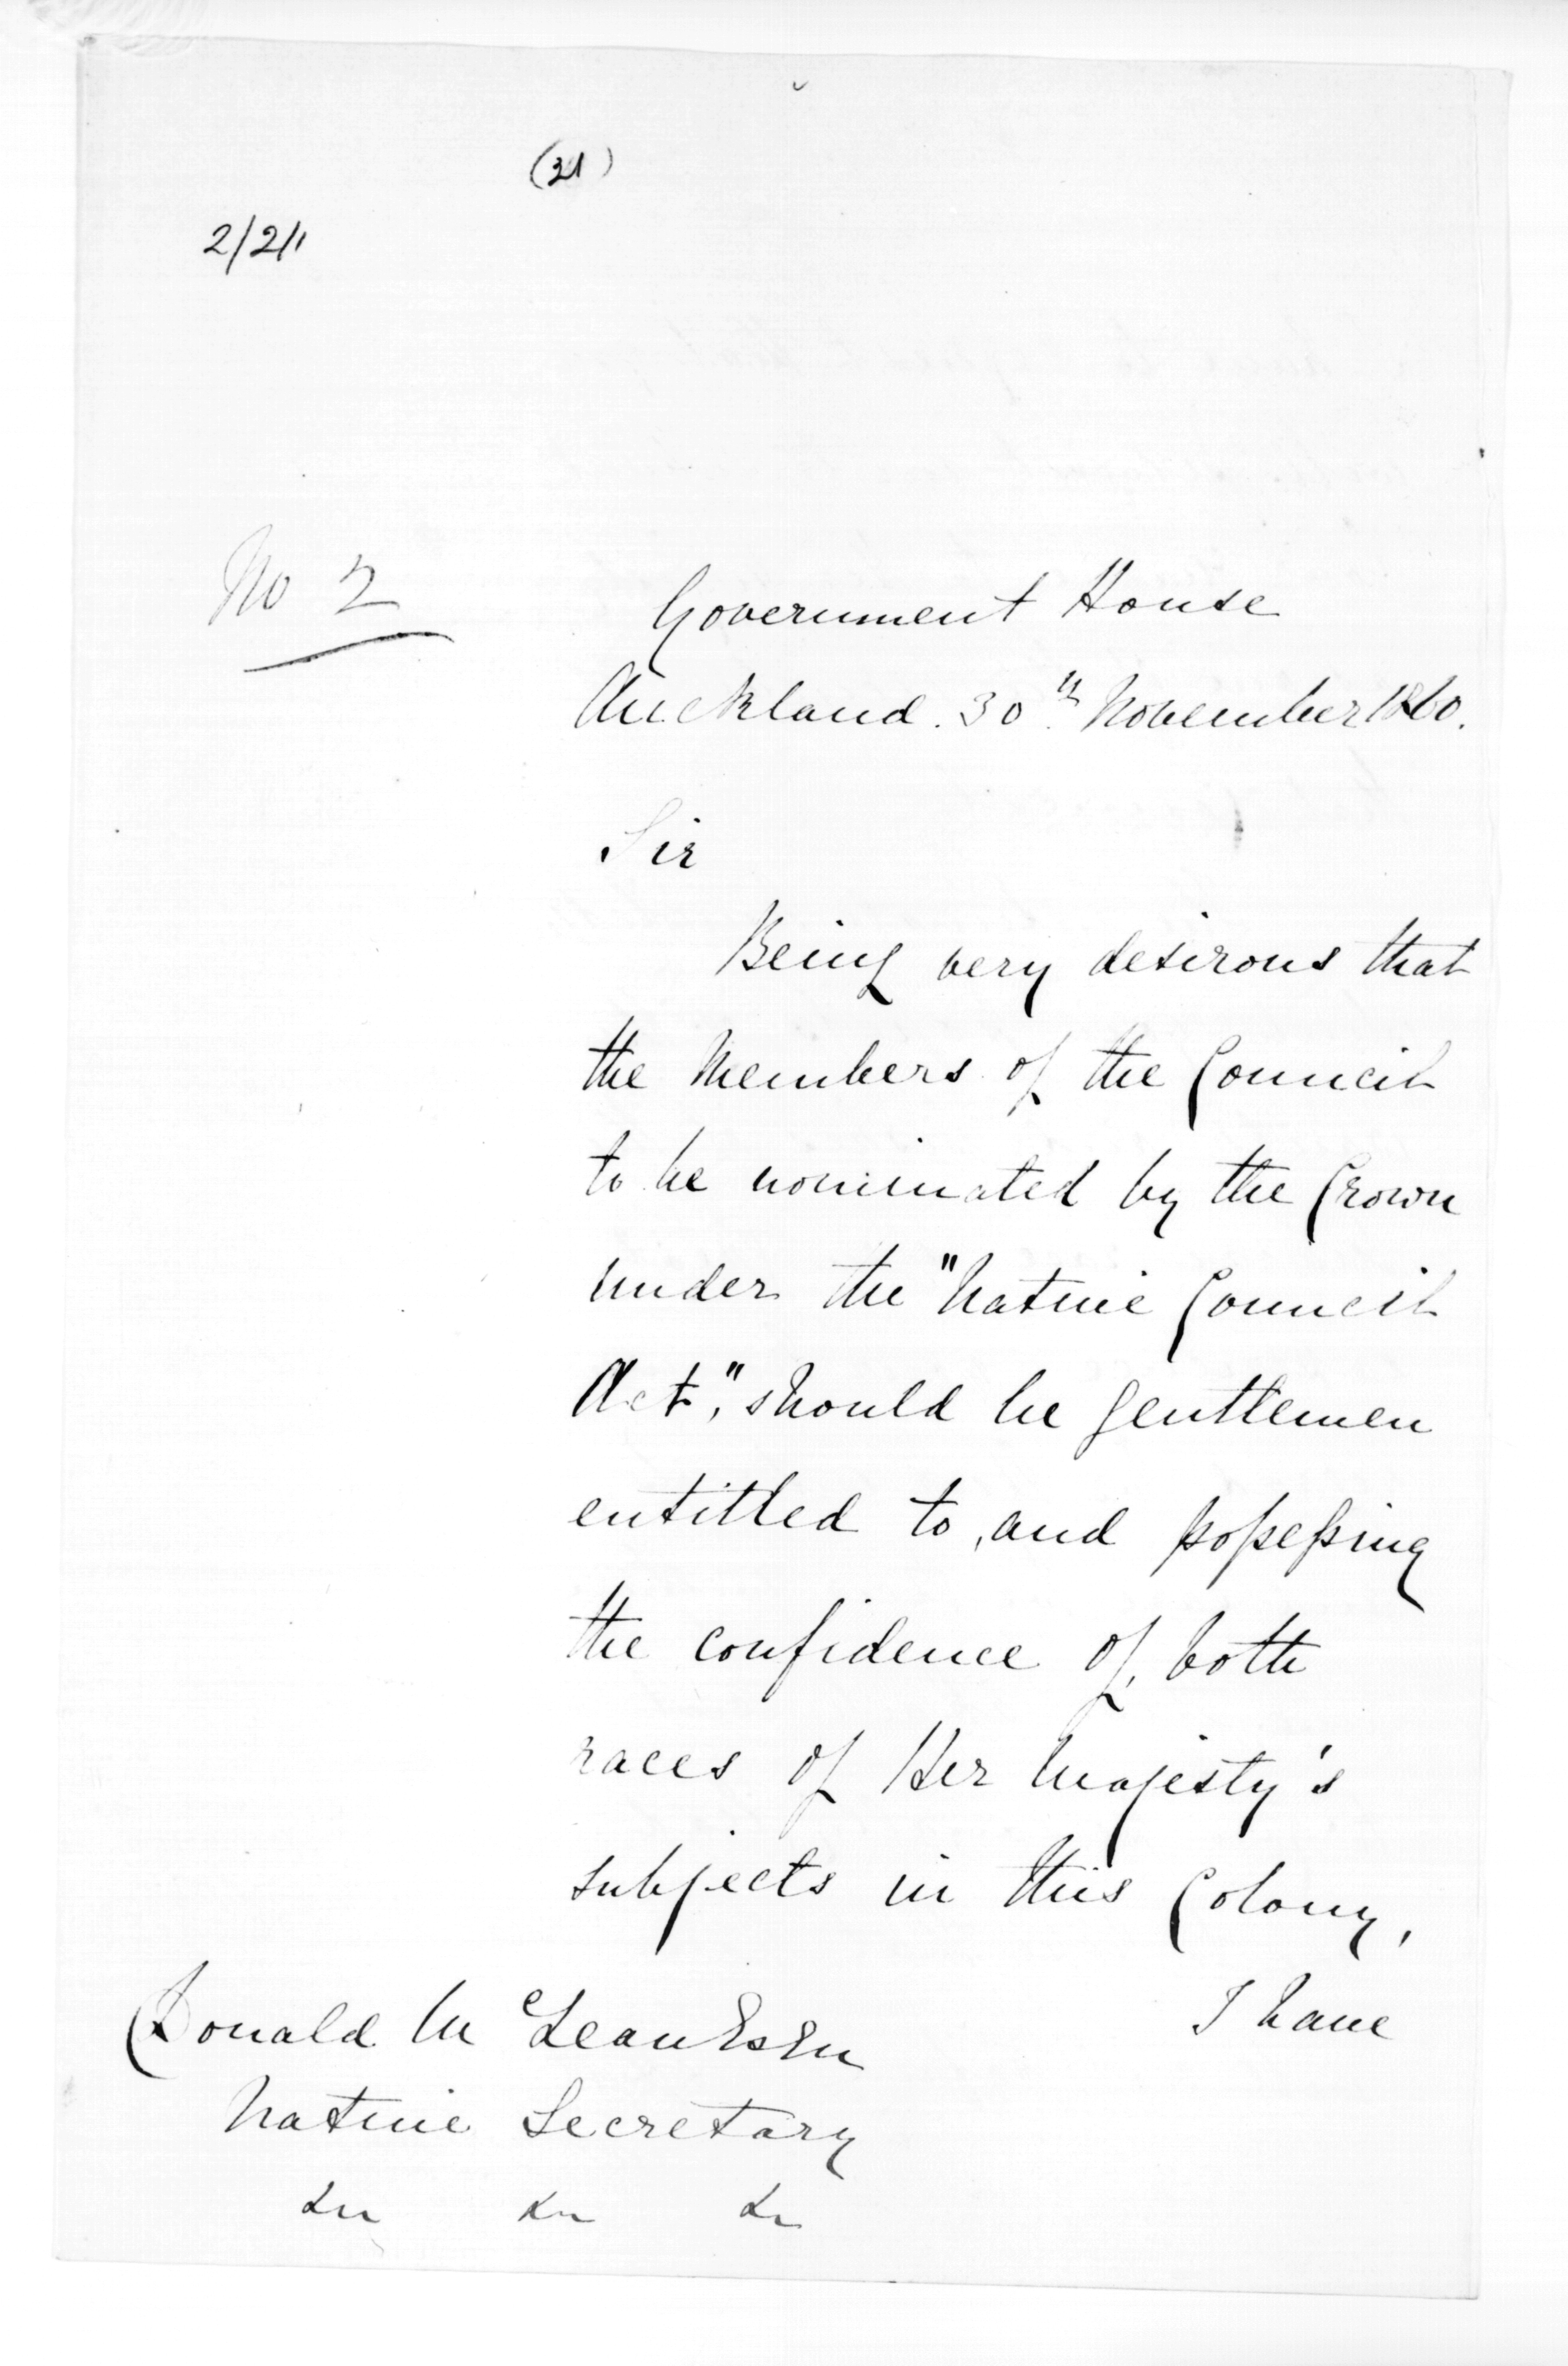 (31)
2/2/1
No 2
Government House
Auckland. 30th November 1860.
Sir
Being very desirous that
the Members of the Council
to be nominated by the Crown
under the "Native Council
Act", should be gentlemen
entitled to, and possessing
the confidence of both
races of Her Majesty's
subjects in this Colony,
I have
Donald McLean Esqre
Native Secretary
&c &c &c